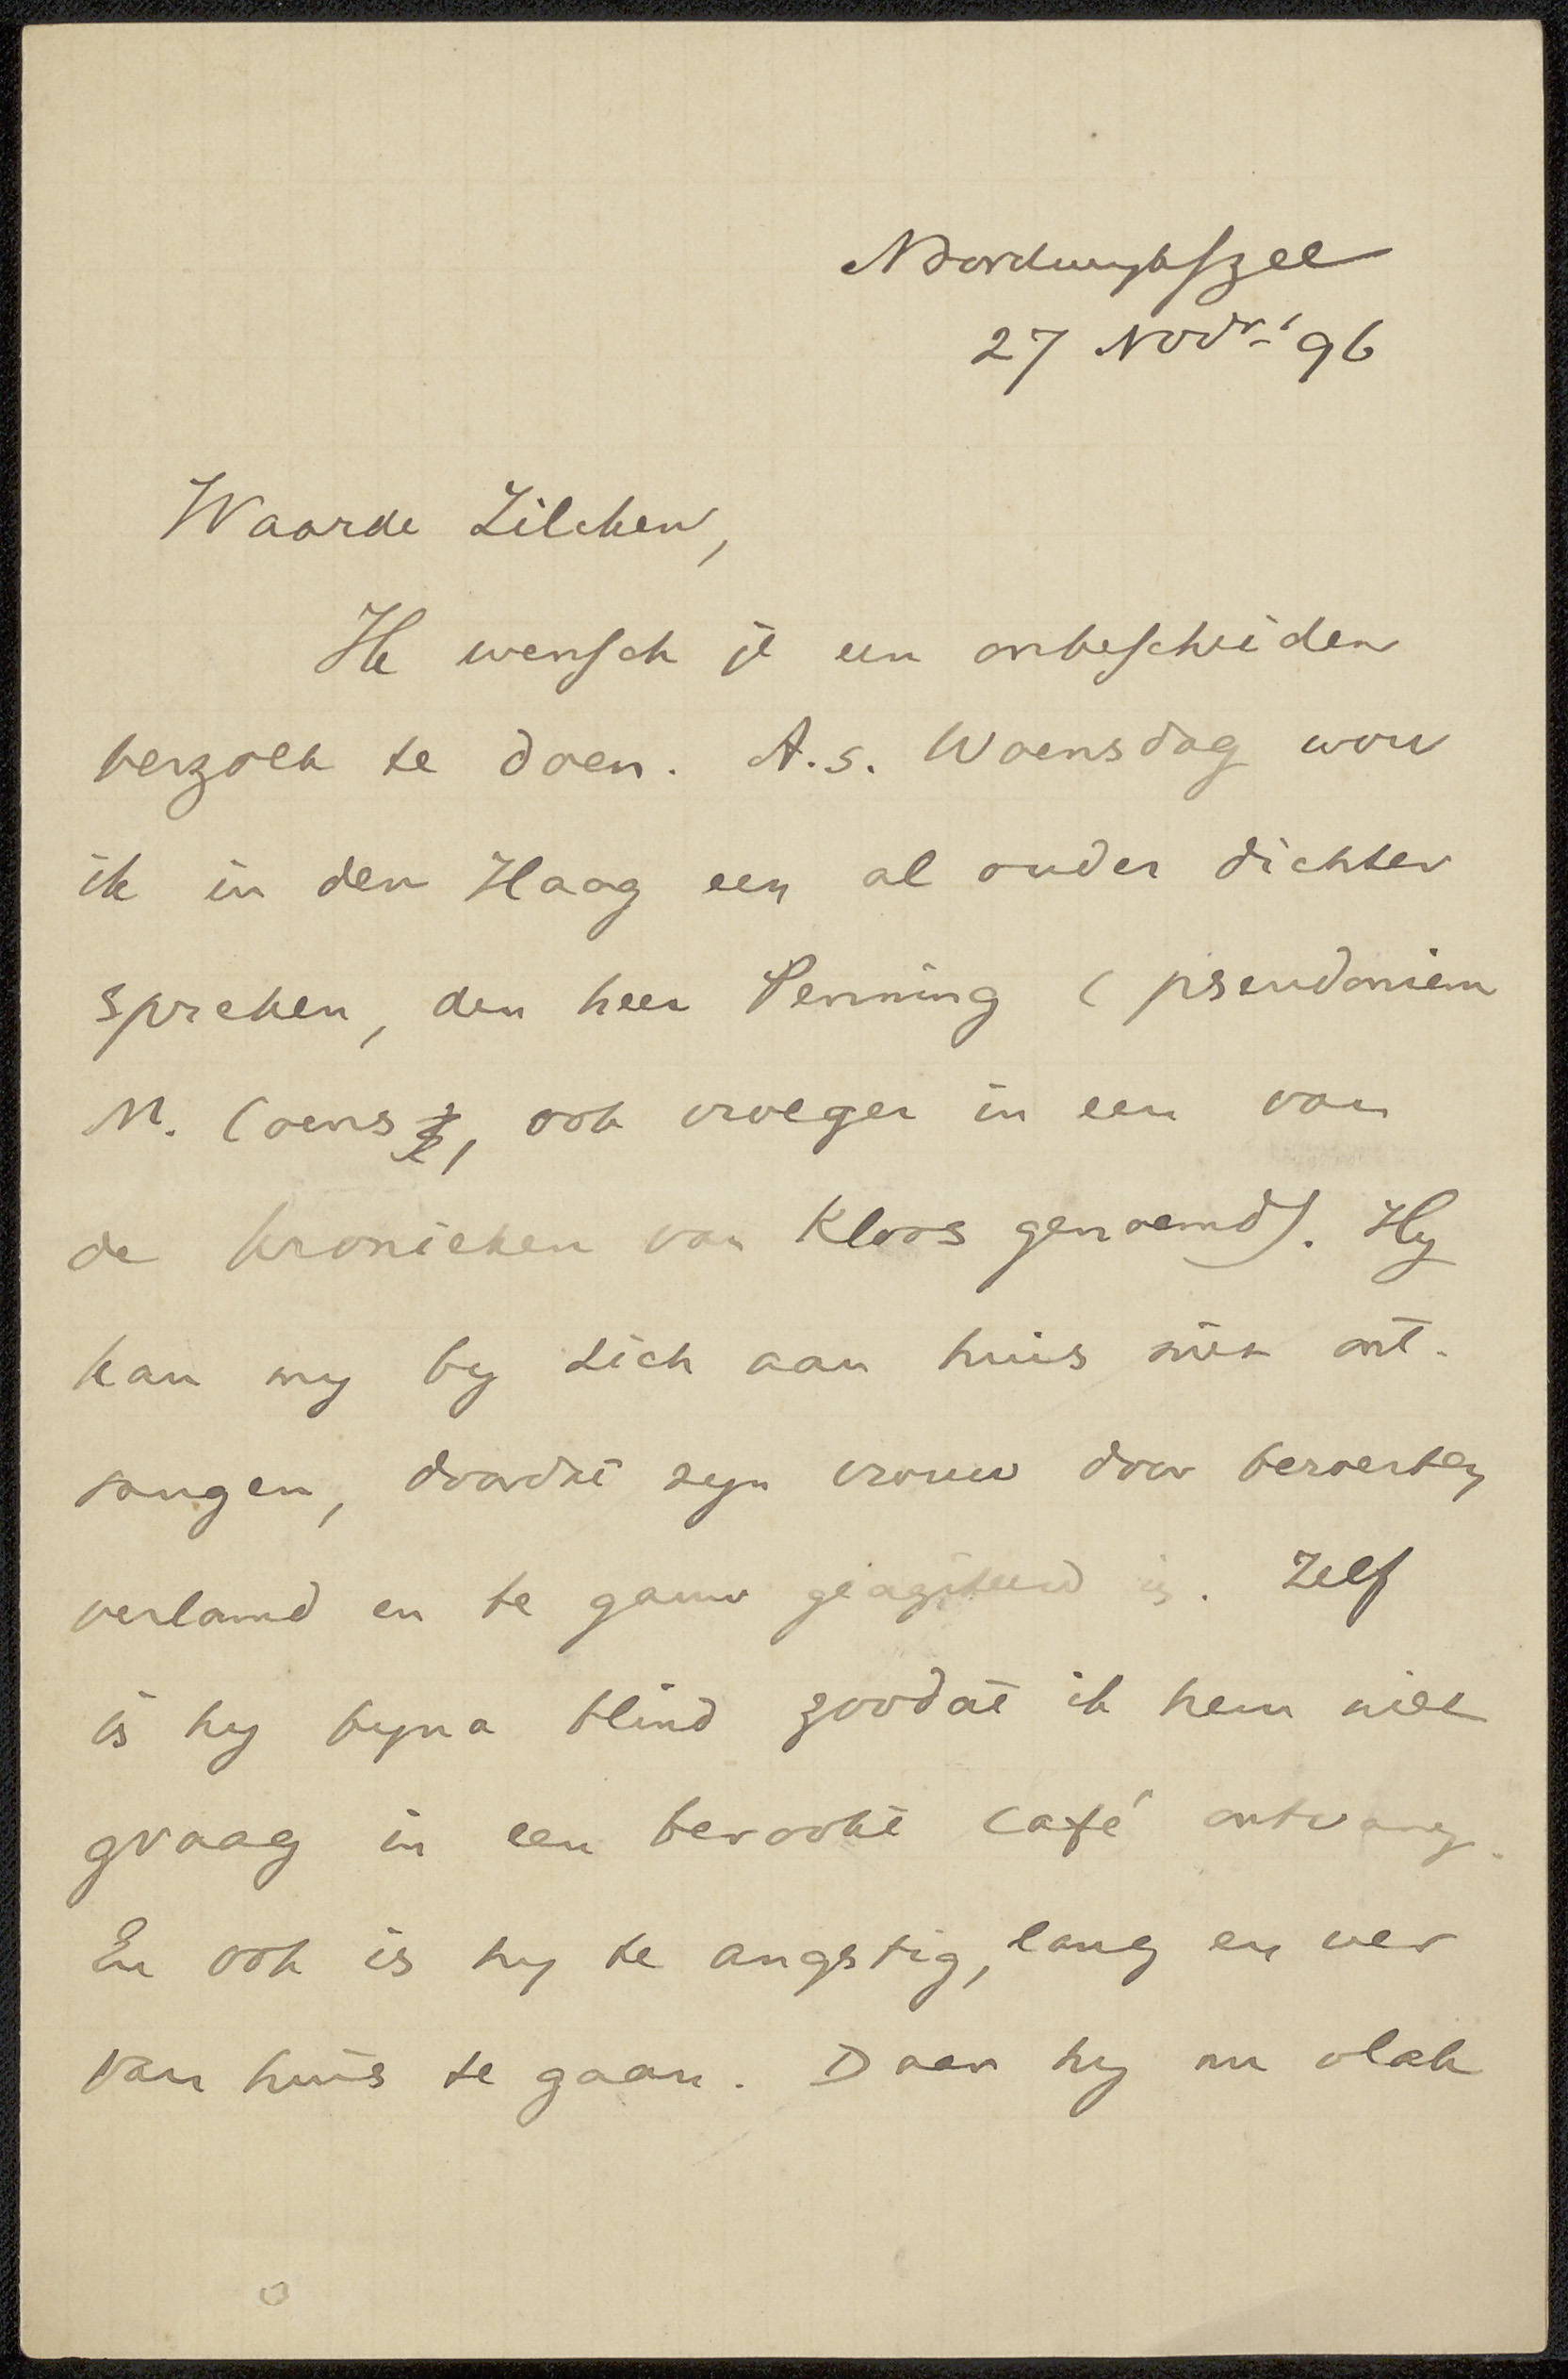 Noordwyk a/zee
27 Novr. '96
Waarde Zilcken,
Ik wensch je een onbescheiden
verzoek te doen. A.s. Woensdag wou
ik in den Haag een al ouder dichter
spreken, den heer Penning (pseudoniem
M. Coens, ook vroeger in een van
de kronieken van Kloos genoemd). Hy
kan my by zich aan huis niet ont-
vangen, doordat zyn vrouw door beroerten
verlamd en te gauw geagiteerd is. Zelf
is hy byna blind zoodat ik hem niet
graag in een berookt café ontvang.
En ook is hy te angstig, lang en ver
van huis te gaan. Daar hy nu vlak